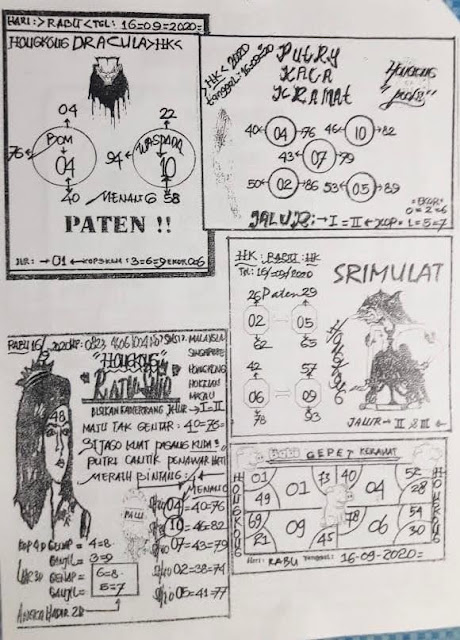 HARI:> RABU < TGL: 16=09=2020=
HONGKONG DRACULA>HK<
04
22
BOM
04
76
WASPADA
10
94
40
MENANG
58
PATEN !!
01
3=6=9
>HK< 2020
PUTRY
KACA
KRAMAT
40 04 76
46 10 82
43 07 79
50 02 86
53 05 89
=EKOR=
0=2=6
JALUR:→I=II← KOP=1=5=7
HK: RABU: HK
TGL: 16/09/2020
SRIMULAT
26 Paten 29
02 05
62 65
42 57
06 09
78 93
JALUR→ II & III ←
RABU 16
2020
MALAYSIA
SINGAPORE
HONGKONG
MACAU
"HONGKONG"
"Ratu
JALUR→I=II
48
MAJU TAK GENTAR: 40=76=
31 JAGO KUAT PASANG KUDA
PUTRI CANTIK PENAWAR HATI
MERAH BINTANG:
MENANG
04=40=76
10=46=82
07=43=79
02=38=74
05=41=77
KOP 4D GENAP = 4=8
GANJIL = 3=9
GENAP = 6=8
GANJIL = 5=7
ANGKA HADIR 2D
GEPET KERAMAT
HONGKONG
01 49 01 73 40 04 52 28
69 21 09 45 78 06 54 30
HONGKONG
Hari: RABU Tanggal: 16-09-2020=